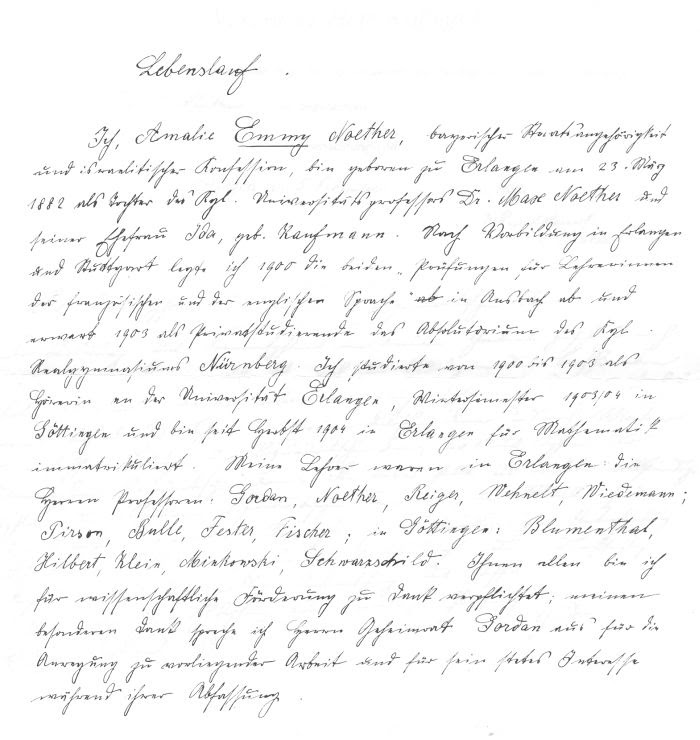 Lebenslauf.
Ich, Amalie Emmy Noether, bayerischer Staatsangehörigkeit
und israelitischer Konfession, bin geboren zu Erlangen am 23. März
1882 als Tochter des Kgl. Universitätsprofessors Dr. Max Noether und
seiner Ehefrau Ida, geb. Kaufmann. Nach Vorbildung in Erlangen
und Stuttgart legte ich 1900 die beiden „Prüfungen für Lehrerinnen
der französischen und der englischen Sprache" ab in Ansbach ab und
erwarb 1903 als Privatstudierende das Absolutorium des Kgl.
Realgymnasiums Nürnberg. Ich studierte von 1900 bis 1903 als
Hörerin an der Universität Erlangen, Wintersemester 1903/04 in
Göttingen und bin seit Herbst 1904 in Erlangen für Mathematik
immatrikuliert. Meine Lehrer waren in Erlangen: die
Herren Professoren: Gordan, Noether, Reiger, Wehnelt, Wiedemann;
Pirson, Bulle, Fester, Fischer; in Göttingen: Blumenthal,
Hilbert, Klein, Minkowski, Schwarzschild. Ihnen allen bin ich
für wissenschaftliche Förderung zu Dank verpflichtet; meinen
besonderen Dank spreche ich Herrn Geheimrat Gordan aus für die
Anregung zu vorliegender Arbeit und für sein stetes Interesse
während ihrer Abfassung.